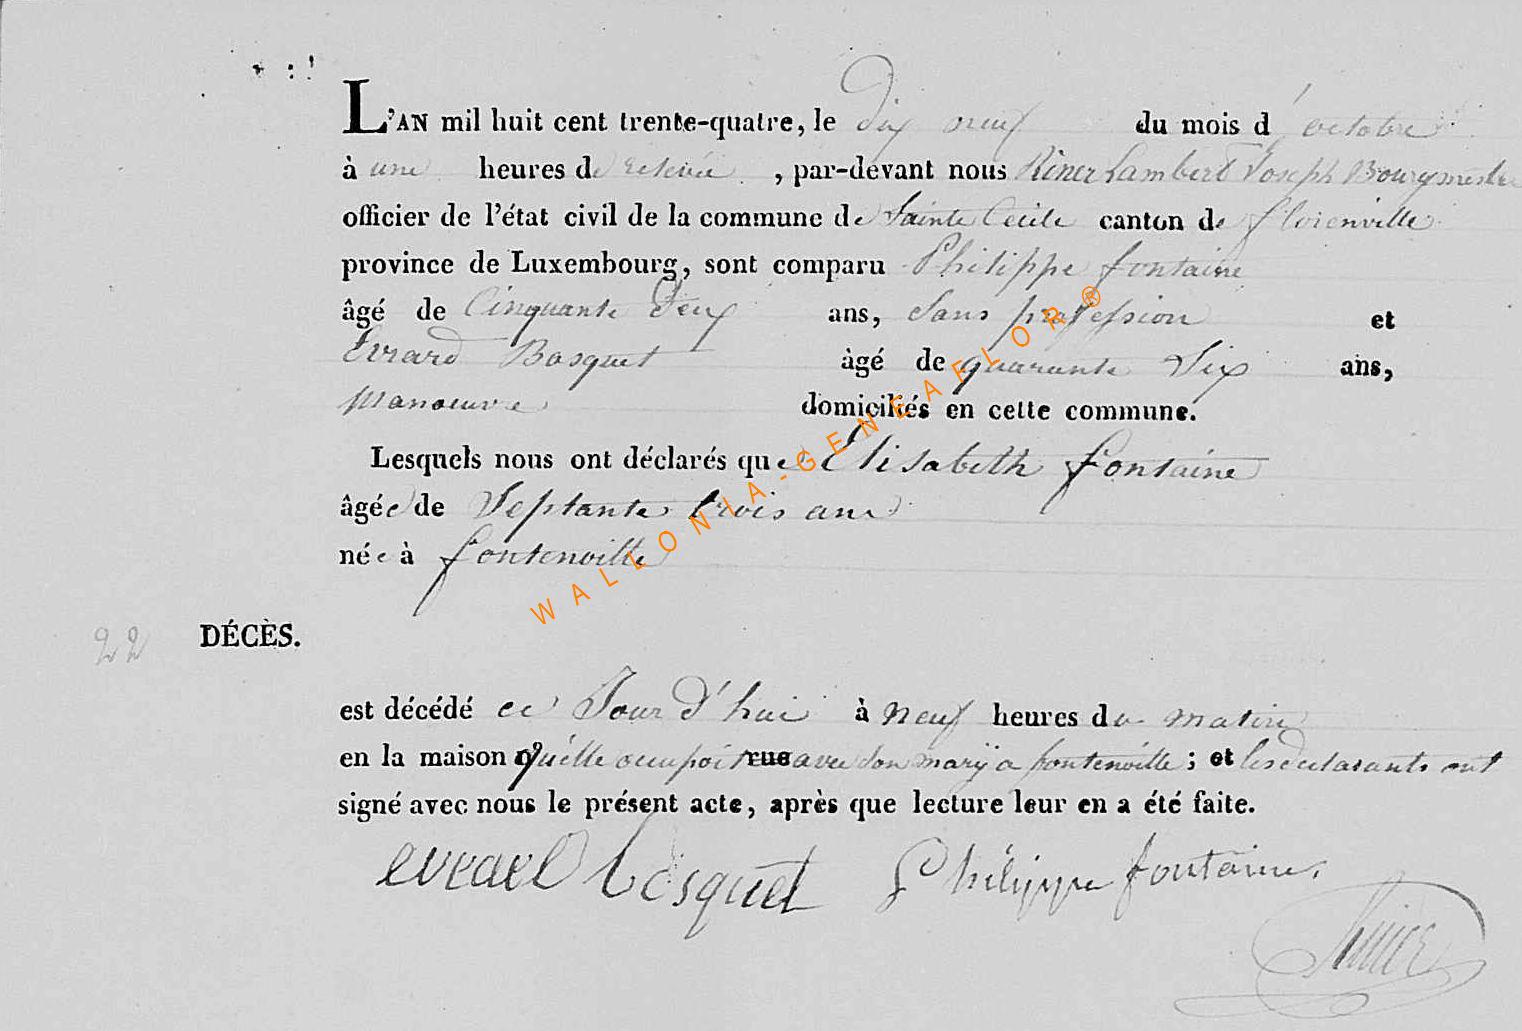 L'AN mil huit cent trente-quatre, le dix neuf du mois d'octobre
à une heures de relevée, par-devant nous Riner Lambert Joseph Bourgmestre
officier de l'état civil de la commune de Sainte Cecile canton de florenville
province de Luxembourg, sont comparu Philippe fontaine
âgé de Cinquante Deux ans, Sans profession et
Evrard Bosquet àgé de quarante Six ans,
Manoeuvre domiciliés en cette commune.
Lesquels nous ont déclarés que Elisabeth fontaine
âgée de Septante trois ans
née à fontenoille
22 DÉCÈS.
est décédé ce Jour d'hui à neuf heures du matin
en la maison qu'elle occupoit rue avec son mary a fontenoille ; et les déclarants ont
signé avec nous le présent acte, après que lecture leur en a été faite.
evrard bosquet Philippe fontaine.
WALLONIA-GENEAFLOR®